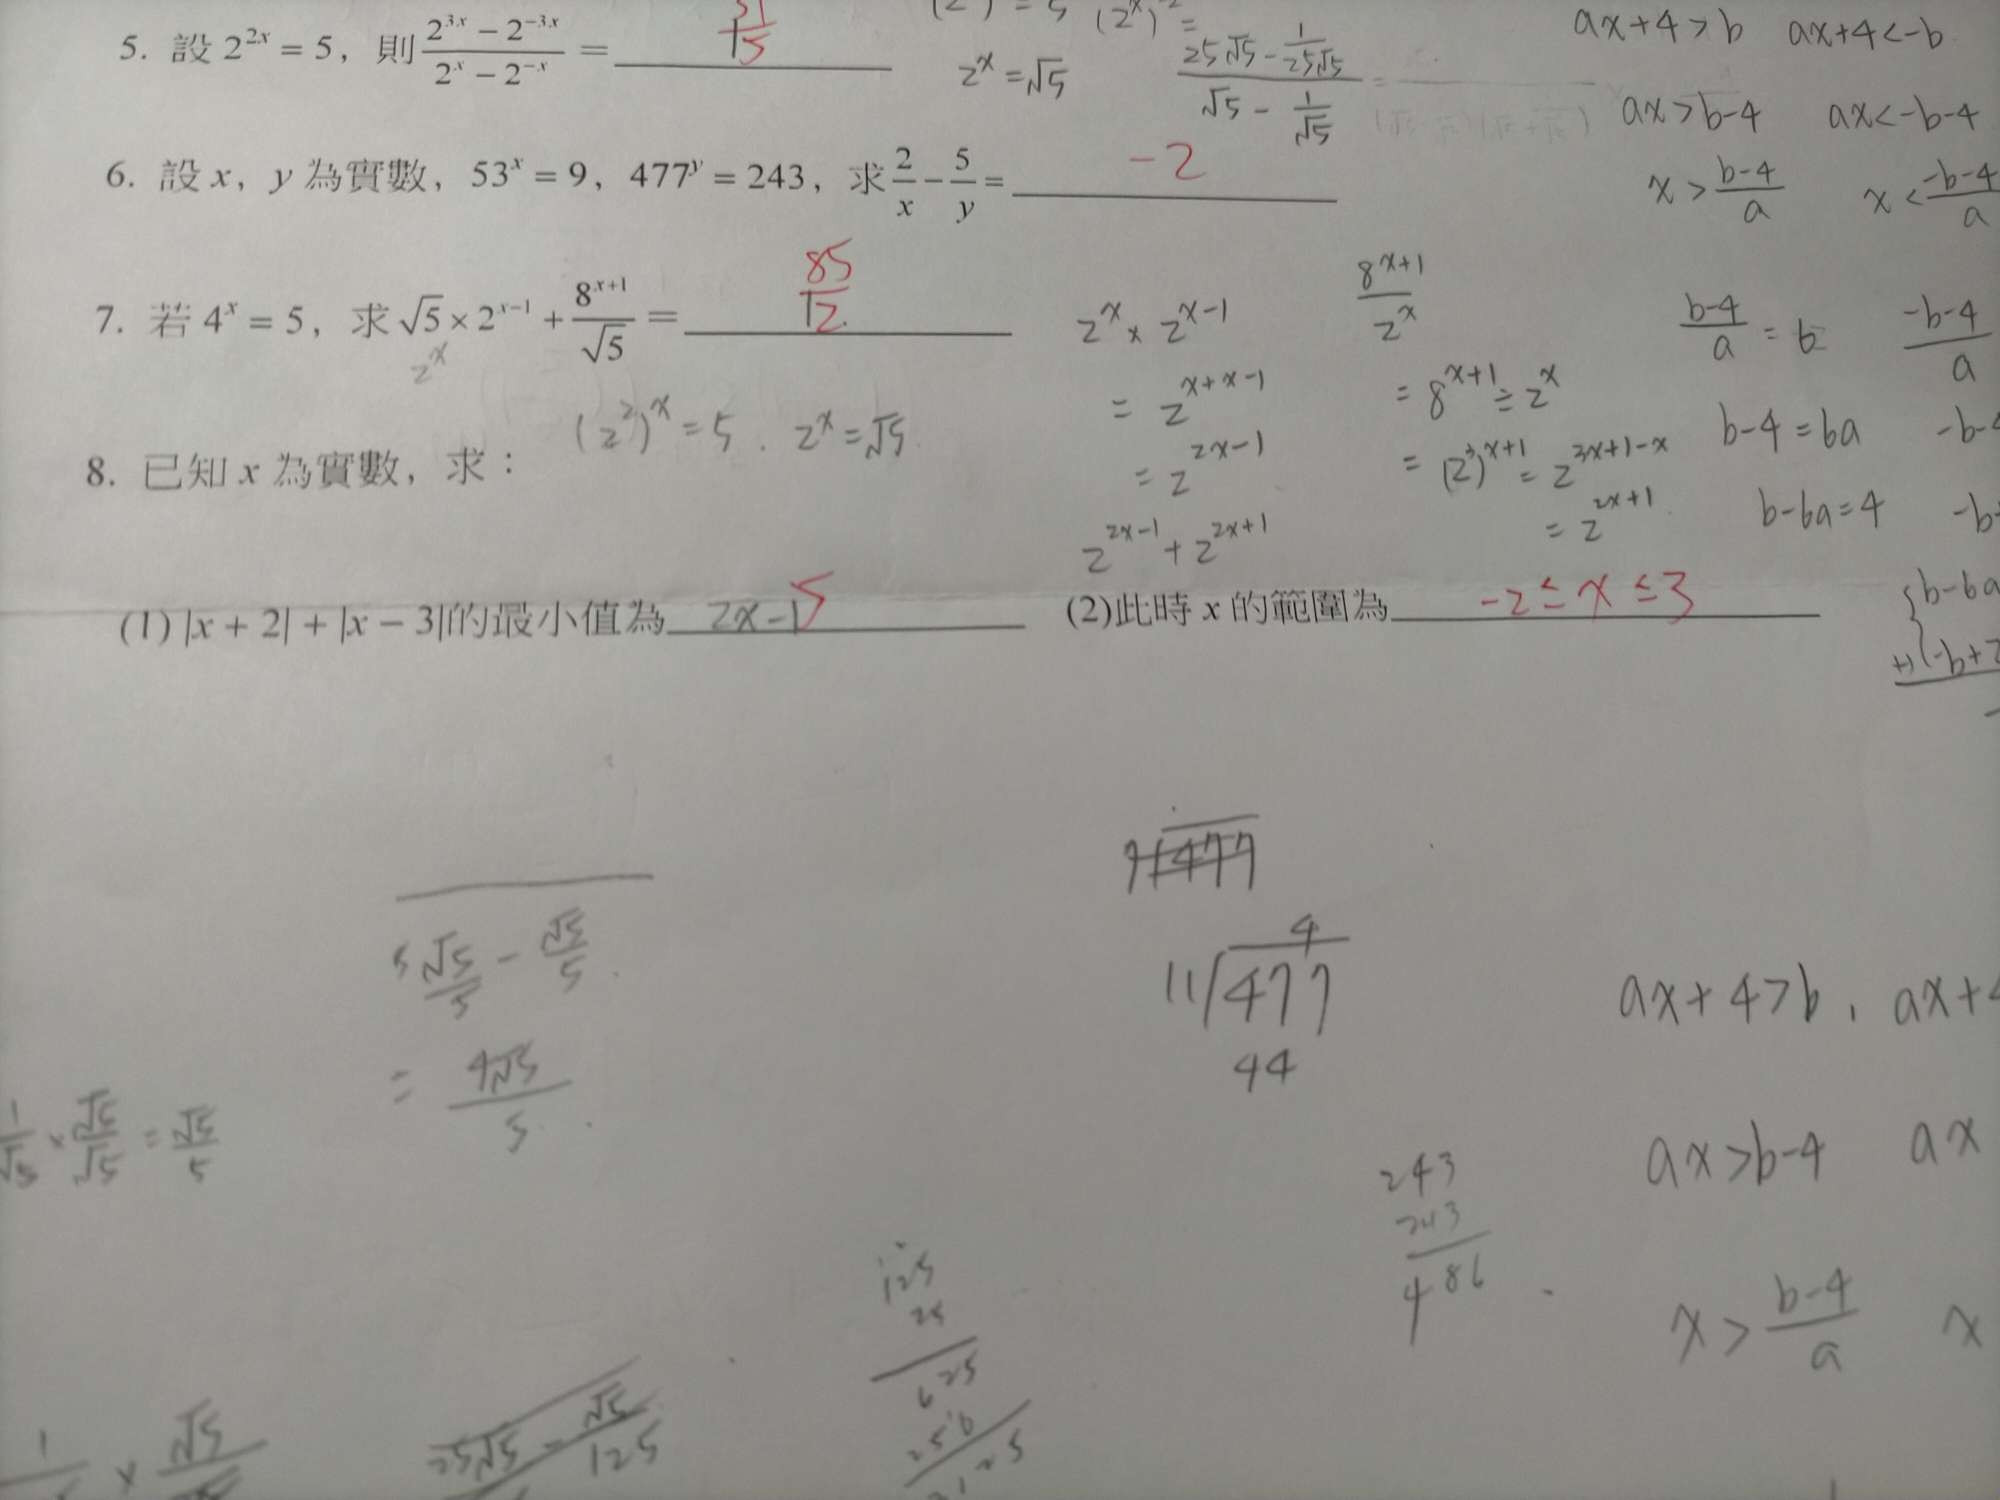 5. 設 2^{2x} = 5，則 \frac{2^{3x} - 2^{-3x}}{2^x - 2^{-x}} = \frac{31}{5}
2^x = √5
\frac{25√5 - \frac{1}{25√5}}{√5 - \frac{1}{√5}} =
ax+4>b ax+4<-b
ax>b-4 ax<-b-4
x > \frac{b-4}{a} x < \frac{-b-4}{a}
6. 設 x，y 為實數，53^x = 9，477^y = 243，求 \frac{2}{x} - \frac{5}{y} = -2
7. 若 4^x = 5，求 √5 × 2^{x-1} + \frac{8^{x+1}}{√5} = \frac{85}{12}
2^x
(2^2)^x = 5 . 2^x = √5
2^x × 2^{x-1}
= 2^{x+x-1}
= 2^{2x-1}
2^{2x-1} + 2^{2x+1}
\frac{8^{x+1}}{2^x}
= 8^{x+1} ÷ 2^x
= (2^3)^{x+1} = 2^{3x+1-x}
= 2^{2x+1}
\frac{b-4}{a} = 6 \frac{-b-4}{a}
b-4=6a
b-6a=4
{b-6a
8. 已知 x 為實數，求：
(1) |x + 2| + |x − 3|的最小值為 2x-1 5
(2)此時 x 的範圍為 -2 ≤ x ≤ 3
5\frac{√5}{5} - \frac{√5}{5}
= \frac{4√5}{5}
\frac{1}{√5} × \frac{√5}{√5} = \frac{√5}{5}
477
4
11 477
44
243
243
486
ax+4>b , ax+4
ax>b-4 ax
x > \frac{b-4}{a} x
125
25
625
250
25√5 - \frac{√5}{125}
1 × √5